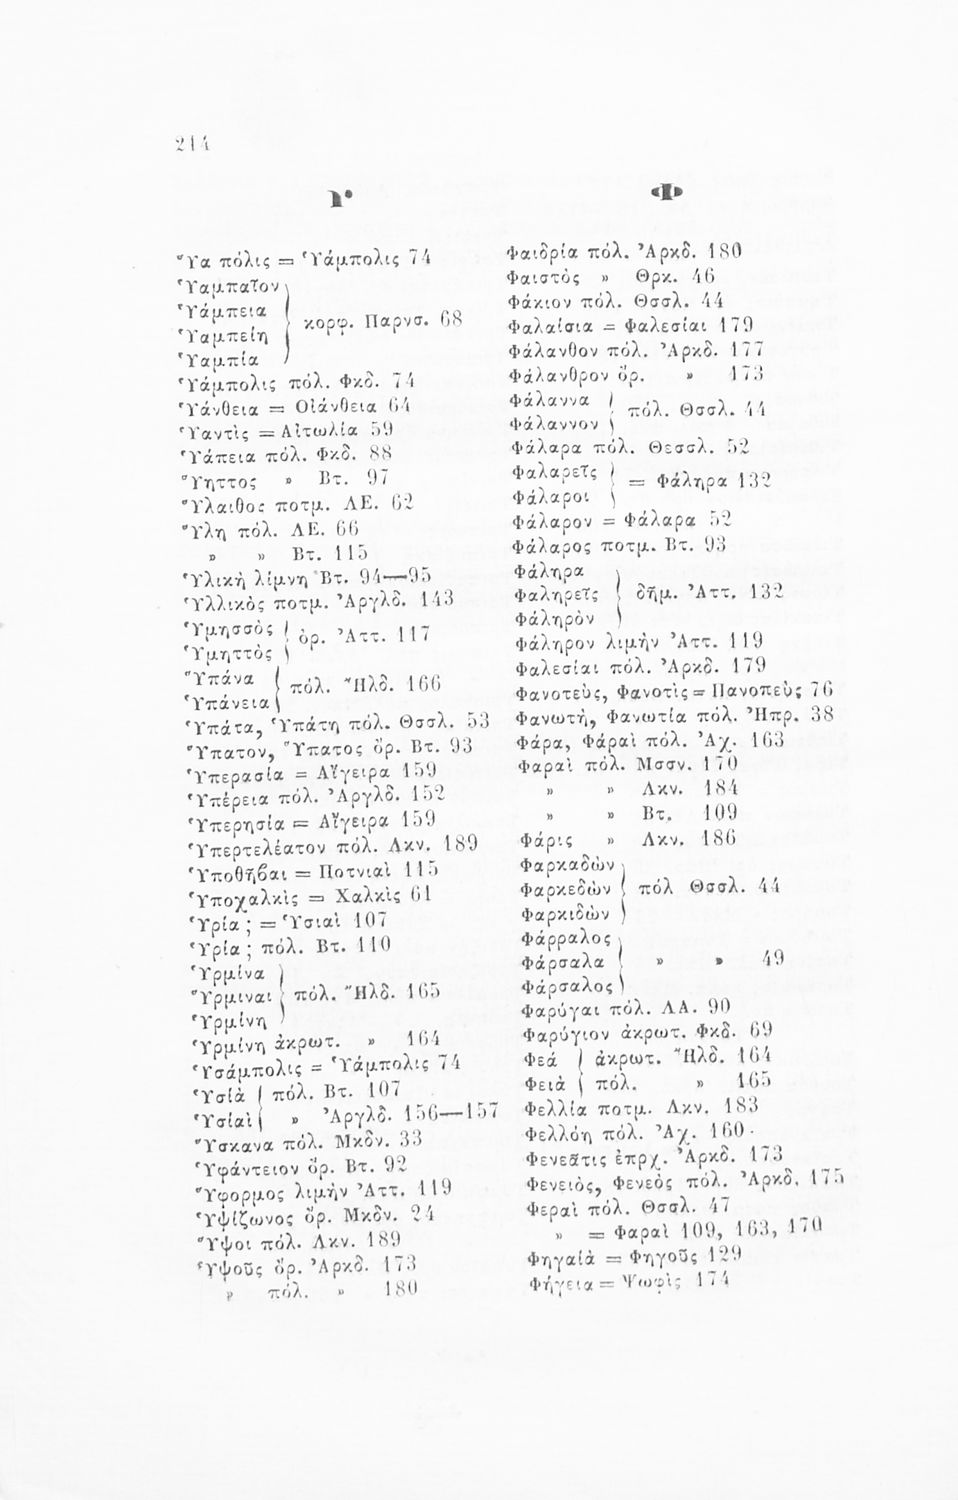 214
Υ
Ὕα πόλις = Ὑάμπολις 74
Ὑαμπαῖον
Ὑάμπεια
Ὑαμπείη
Ὑαμπία
κορφ. Παρνσ. 68
Ὑάμπολις πόλ. Φκδ. 74
Ὑάνθεια = Οἰάνθεια 64
Ὑαντὶς = Αἰτωλία 59
Ὑάπεια πόλ. Φκδ. 88
Ὕηττος » Βτ. 97
Ὕλαιθος ποτμ. ΛΕ. 62
Ὕλη πόλ. ΛΕ. 66
» » Βτ. 115
Ὑλικὴ λίμνη Βτ. 94—95
Ὑλλικὸς ποτμ. Ἀργλδ. 143
Ὑμησσὸς
Ὑμηττὸς
ὄρ. Ἀττ. 117
Ὕπάνα
Ὑπάνεια
πόλ. Ἠλδ. 166
Ὑπάτα, Ὑπάτη πόλ. Θσσλ. 53
Ὕπατον, Ὕπατος ὄρ. Βτ. 93
Ὑπερασία = Αἴγειρα 159
Ὑπέρεια πόλ. Ἀργλδ. 152
Ὑπερησία = Αἴγειρα 159
Ὑπερτελέατον πόλ. Λκν. 189
Ὑποθῆβαι = Ποτνιαὶ 115
Ὑποχαλκὶς = Χαλκὶς 61
Ὑρία ; = Ὑσιαὶ 107
Ὑρία ; πόλ. Βτ. 110
Ὑρμίνα
Ὕρμιναι
Ὑρμίνη
πόλ. Ἠλδ. 165
Ὑρμίνη ἀκρωτ. » 164
Ὑσάμπολις = Ὑάμπολις 74
Ὑσία πόλ. Βτ. 107
Ὑσίαὶ » Ἀργλδ. 156—157
Ὕσκανα πόλ. Μκδν. 33
Ὑφάντειον ὄρ. Βτ. 92
Ὕφορμος λιμὴν Ἀττ. 119
Ὑψίζωνος ὄρ. Μκδν. 24
Ὕψοι πόλ. Λκν. 189
Ὑψοῦς ὄρ. Ἀρκδ. 173
» πόλ. » 180
Φ
Φαιδρία πόλ. Ἀρκδ. 180
Φαιστὸς » Θρκ. 46
Φάκιον πόλ. Θσσλ. 44
Φαλαίσια = Φαλεσίαι 179
Φάλανθον πόλ. Ἀρκδ. 177
Φάλανθρον ὄρ. » 173
Φάλαννα
Φάλαννον
πόλ. Θσσλ. 44
Φάλαρα πόλ. Θεσσλ. 52
Φαλαρεῖς
Φάλαροι
= Φάληρα 132
Φάλαρον = Φάλαρα 52
Φάλαρος ποτμ. Βτ. 93
Φάληρα
Φαληρεῖς
Φάληρὸν
δῆμ. Ἀττ. 132
Φάληρον λιμὴν Ἀττ. 119
Φαλεσίαι πόλ. Ἀρκδ. 179
Φανοτεὺς, Φανοτὶς = Πανοπεὺς 76
Φανωτὴ, Φανωτία πόλ. Ἠπρ. 38
Φάρα, Φάραὶ πόλ. Ἀχ. 163
Φαραὶ πόλ. Μσσν. 170
» » Λκν. 184
» » Βτ. 109
Φάρις » Λκν. 186
Φαρκαδὼν
Φαρκεδὼν
Φαρκιδὼν
πόλ Θσσλ. 44
Φάρραλος
Φάρσαλα
Φάρσαλος
» » 49
Φαρύγαι πόλ. ΛΑ. 90
Φαρύγιον ἀκρωτ. Φκδ. 69
Φεά ἀκρωτ. Ἠλδ. 164
Φειὰ πόλ. » 165
Φελλία ποτμ. Λκν. 183
Φελλόη πόλ. Ἀχ. 160
Φενεᾶτις ἐπρχ. Ἀρκδ. 173
Φενειὸς, Φενεὸς πόλ. Ἀρκδ. 175
Φεραὶ πόλ. Θσσλ. 47
» = Φαραὶ 109, 163, 170
Φηγαίὰ = Φηγοῦς 129
Φήγεια = Ψωφὶς 174